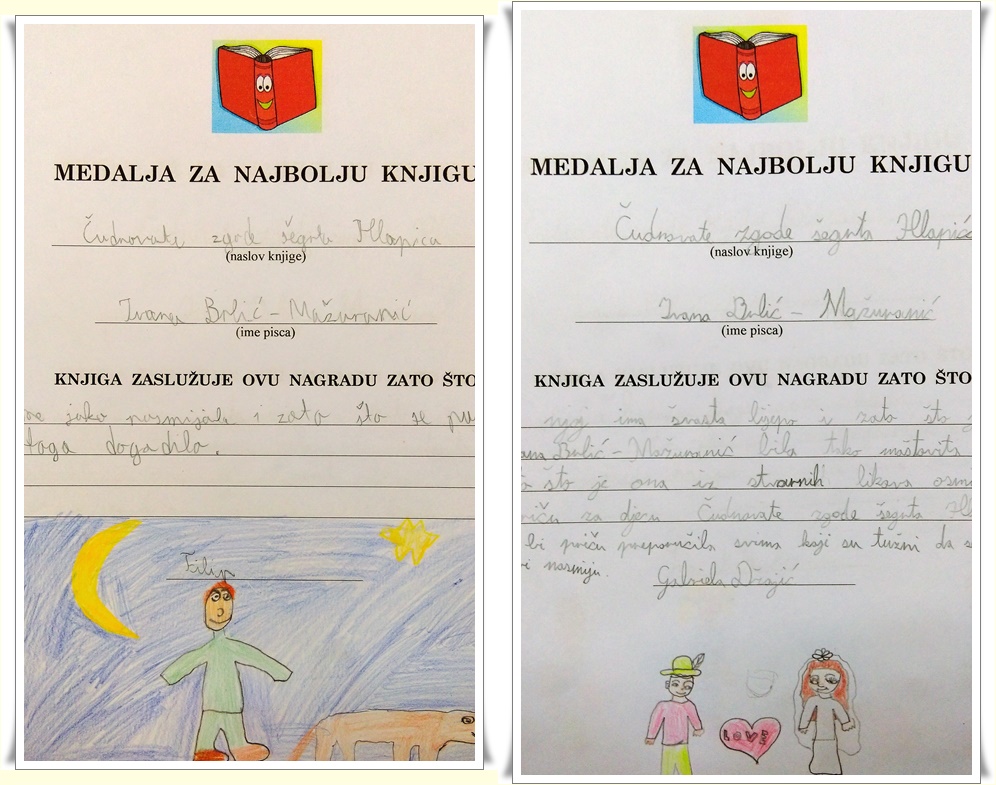 MEDALJA ZA NAJBOLJU KNJIGU
Čudnovate zgode šegrta Hlapića
(naslov knjige)
Ivana Brlić-Mažuranić
(ime pisca)
KNJIGA ZASLUŽUJE OVU NAGRADU ZATO ŠTO
me jako nasmijala i zato što se pu
toga dogadilo.
Filip
MEDALJA ZA NAJBOLJU KNJIGU
Čudnovate zgode šegrta Hlapić
(naslov knjige)
Ivana Brlić - Mažuranić
(ime pisca)
KNJIGA ZASLUŽUJE OVU NAGRADU ZATO ŠTO
njoj ima svasta lijepo i zato što
ana Brlić-Mažuranić bila tako maštovita
što je ona iz stvarnih likova osmi
priču za djecu Čudnovate zgode šegrta Hla
bi priču preporučila svima koji su tužni da s
nasmiju.
Gabriela
LOVE